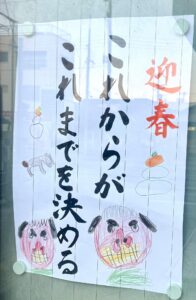 迎春
これからが
これまでを決める